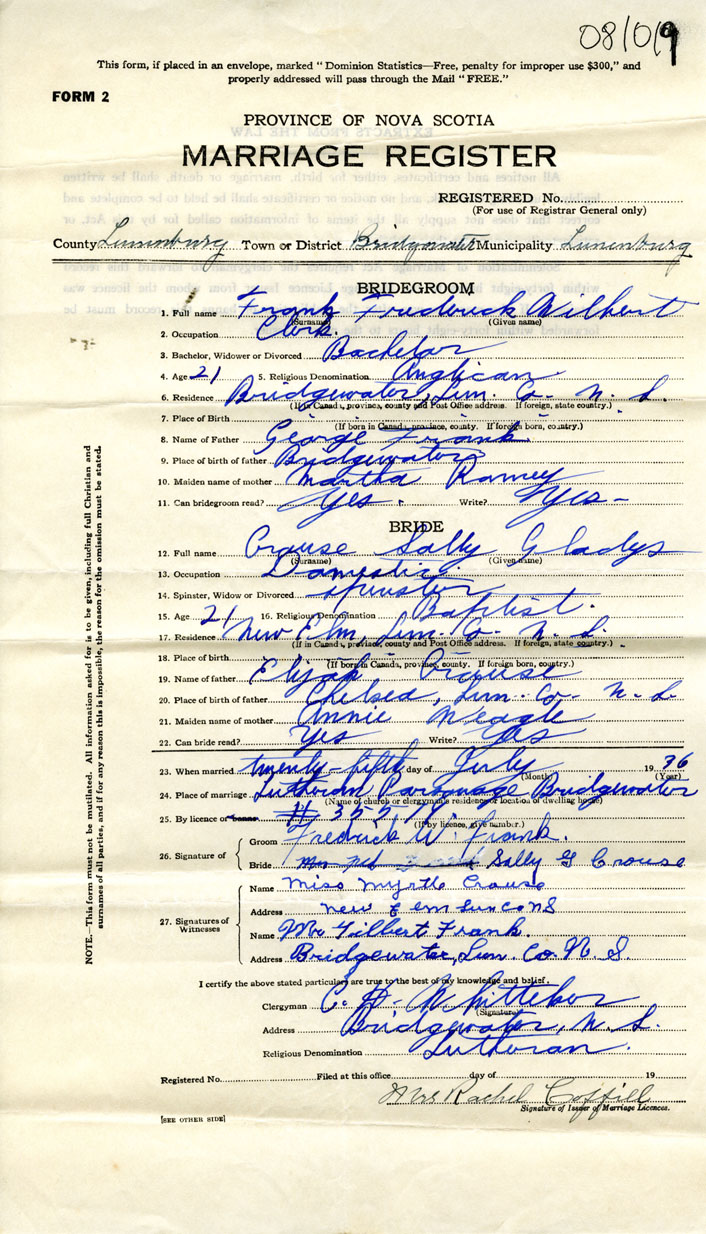 08/0/9
This form, if placed in an envelope, marked "Dominion Statistics—Free, penalty for improper use $300," and
properly addressed will pass through the Mail "FREE."
FORM 2
PROVINCE OF NOVA SCOTIA
MARRIAGE REGISTER
REGISTERED No.
(For use of Registrar General only)
County Lunenburg Town or District Bridgewater Municipality Lunenburg
BRIDEGROOM
1. Full name Frank Frederick Wilbert
(Surname) (Given name)
2. Occupation Clerk.
3. Bachelor, Widower or Divorced Bachelor
4. Age 21 5. Religious Denomination Anglican
6. Residence Bridgewater, Lun. Co. N. S.
(If in Canada, province, county and Post Office address. If foreign, state country.)
7. Place of Birth " " " "
(If born in Canada, province, county. If foreign born, country.)
8. Name of Father George Frank
9. Place of birth of father Bridgewater
10. Maiden name of mother Martha Ramey
11. Can bridegroom read? Yes. Write? Yes-
BRIDE
12. Full name Crouse Sally Gladys
(Surname) (Given name)
13. Occupation Domestic
14. Spinster, Widow or Divorced Spinster
15. Age 21 16. Religious Denomination Baptist.
17. Residence New Elm, Lun. Co. N. S.
(If in Canada, province, county and Post Office address. If foreign, state country.)
18. Place of birth " " " "
(If born in Canada, province, county. If foreign born, country.)
19. Name of father Elijah Crouse
20. Place of birth of father Chelsea, Lun. Co. N. S.
21. Maiden name of mother Annie
22. Can bride read? Yes Write? Yes
23. When married twenty-fifth day of July 1936
(Month) (Year)
24. Place of marriage Lutheran Parsonage Bridgewater
(Name of church or clergyman's residence or location of dwelling house)
25. By licence or banns #
(If by licence, give number.)
26. Signature of
Groom Fredrick W. Frank.
Bride Sally G Crouse
27. Signatures of Witnesses
Name Miss Myrtle Crouse
Address New Elm Lun Co NS
Name Mr Gilbert Frank
Address Bridgewater, Lun. Co. N. S.
I certify the above stated particulars are true to the best of my knowledge and belief.
Clergyman C. H. Whitteker
(Signature)
Address Bridgewater, N. S.
Religious Denomination Lutheran.
Registered No. Filed at this office day of 19
Mrs Rachel Coffill
Signature of Issuer of Marriage Licences.
[SEE OTHER SIDE]
NOTE.—This form must not be mutilated. All information asked for is to be given, including full Christian and
surnames of all parties, and if for any reason this is impossible, the reason for the omission must be stated.